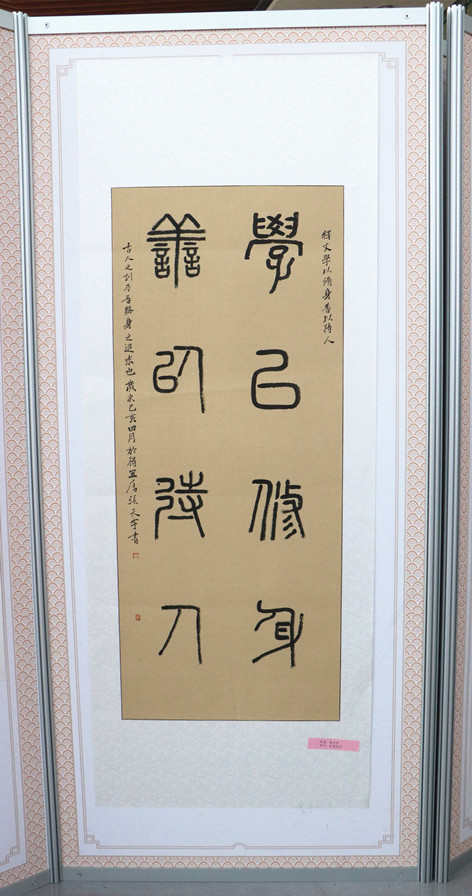 釋文學以修身善以待人
學以修身
善以待人
古人之訓乃吾終身之追求也歲次己亥四月於張天宇書